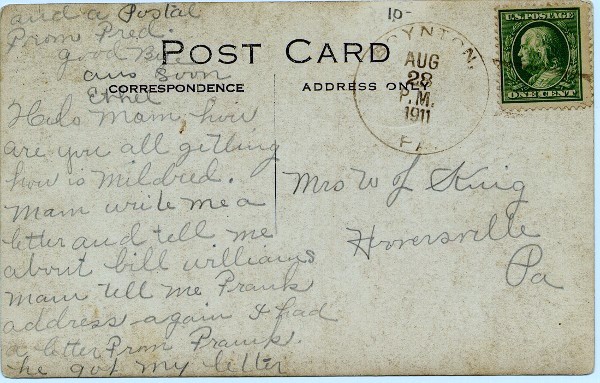 and a Postal
From Fred.
good Bye
ans Soon
Ethel
POST CARD
CORRESPONDENCE
ADDRESS ONLY
10-
BOYNTON,
AUG
28
P.M.
1911
PA.
U.S. POSTAGE
ONE CENT
Helo Mam, how
are you all getting
how is Mildred.
Mam write me a
letter and tell me
about bill williams
mam tell me Frank
address again I had
a letter From Frank.
he got my letter
Mrs W J King
Hooversville
Pa